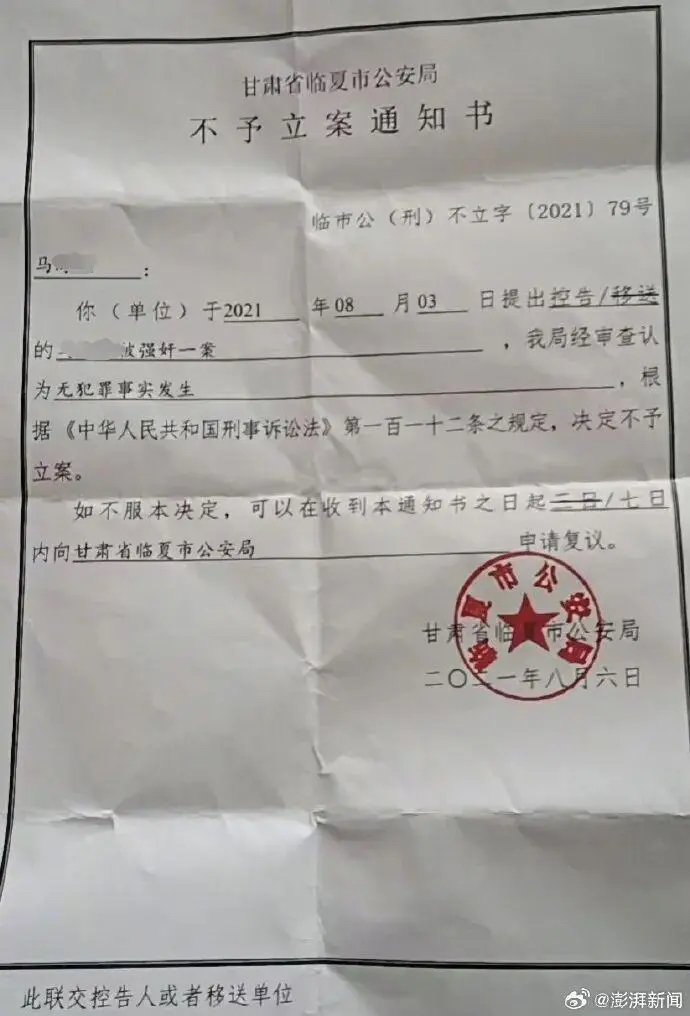 甘肃省临夏市公安局
不予立案通知书
临市公（刑）不立字〔2021〕79号
马：
你（单位）于2021年08月03日提出控告/移送
的被强奸一案，我局经审查认
为无犯罪事实发生，根
据《中华人民共和国刑事诉讼法》第一百一十二条之规定，决定不予
立案。
如不服本决定，可以在收到本通知书之日起三日/七日
内向甘肃省临夏市公安局申请复议。
临夏市公安局
甘肃省临夏市公安局
二〇二一年八月六日
此联交控告人或者移送单位
@澎湃新闻